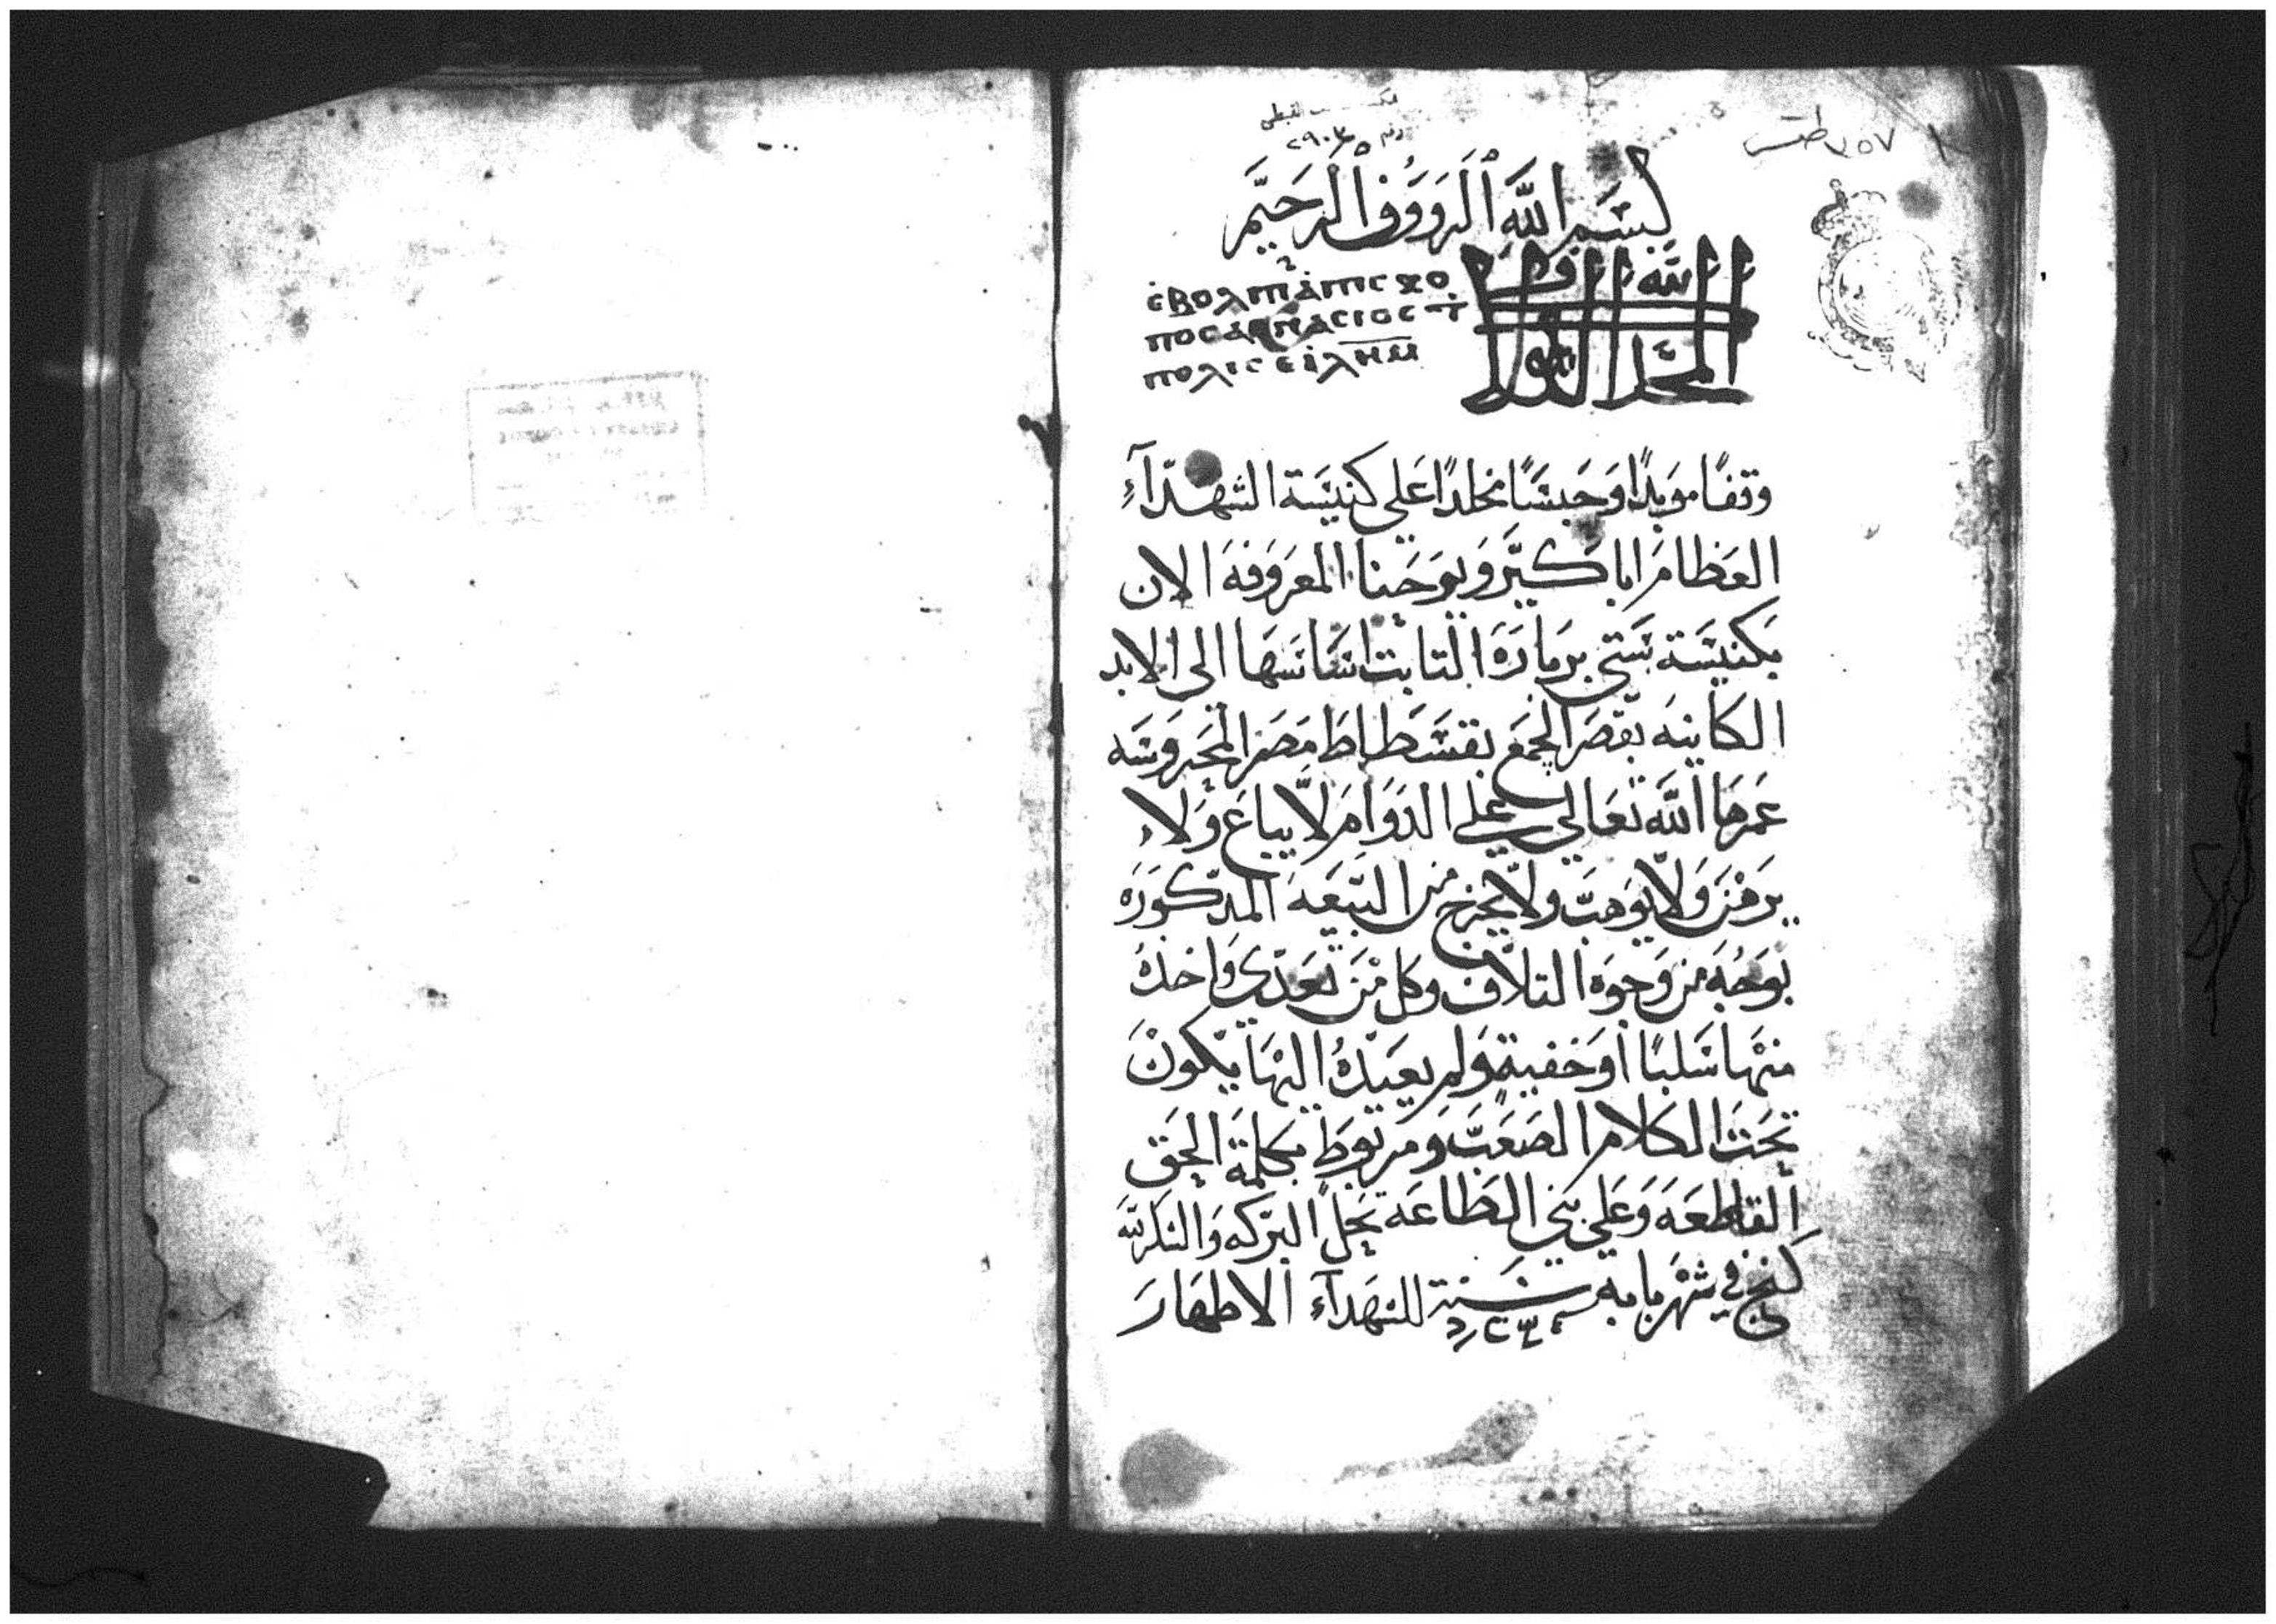 ٧٥٧ طقس
رقم
بسم الله الرووف الرحيم
المجد لله الدايم
ⲉⲃⲟⲗ
ⲡⲟⲗⲓⲥ ⲉⲓⲗⲏⲙ
وقفًا موبدًا وحبسًا مخلدًا علي كنيسة الشهدآء
العظام اباكير ويوحنا المعروفه الان
بكنيسة ستي برباره التابت اساسها الي الابد
الكاينه بقصر الجمع بفسطاط مصر المحروسه
عمرها الله تعالي علي الدوام لا يباع ولا
يرهن ولا يوهب ولا يخرج من البيعه المدكوره
بوجه من وجوه التلاف وكل من تعدي واخده
منها سلبًا او خفية ولم يعيده اليها يكون
تحت الكلام الصعب ومربوط بكلمة الحق
القاطعه وعلي بني الطاعة تحل البركه
في شهر بابه سنة للشهدآء الاطهار